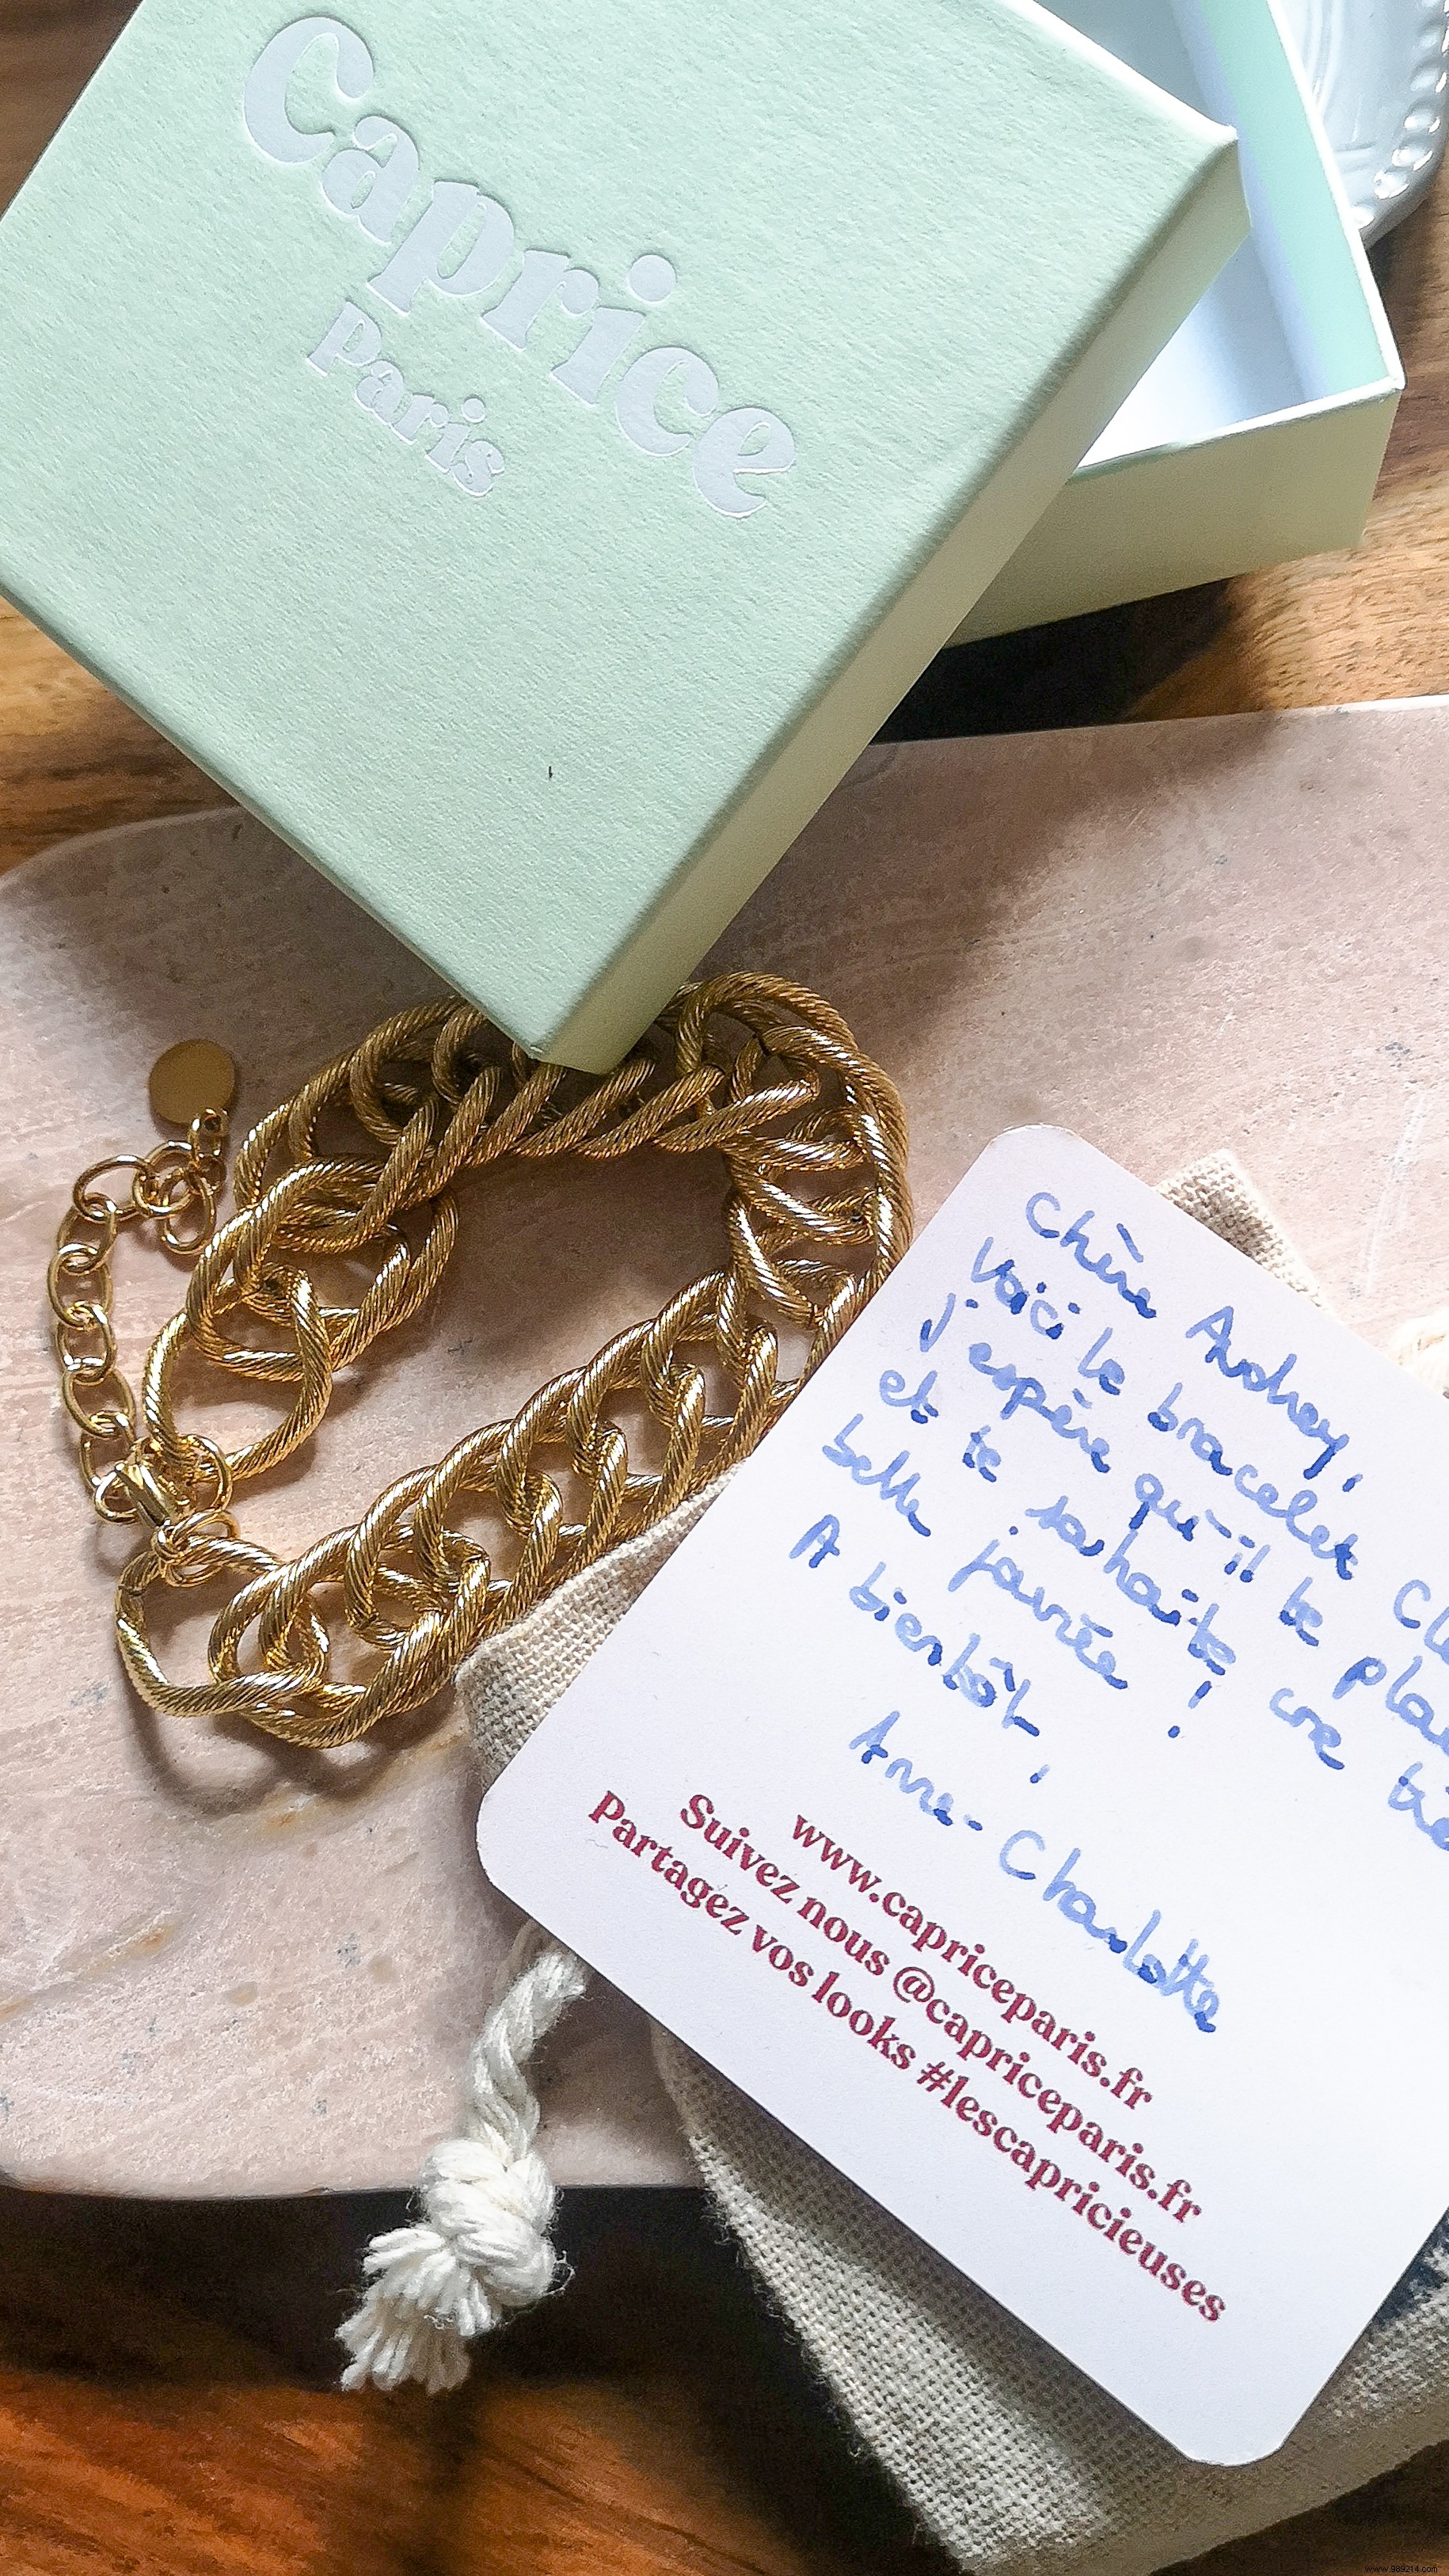 Caprice
Paris
Chère Audrey,
Voici le bracelet
j'espère qu'il te
et te souhaite une
belle journée !
A bientôt,
Anne-Charlotte
www.capriceparis.fr
Suivez nous @capriceparis.fr
Partagez vos looks #lescapricieuses
www.989214.com